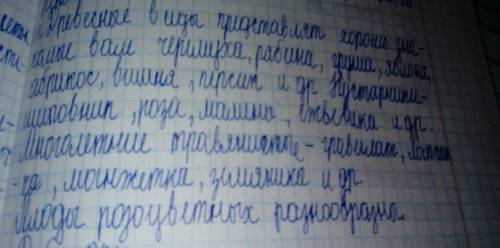 Древесные виды представлят хорошо зна-
камые вам черемуха, рябина, груша, яблоня,
абрикос, вишня, персик и др Кустарники-
шиповник, роза, малина, ежевика и др.
Многолетние травянистые - гравилат, лапчат
ка, манжетка, земляника и др
Плоды розоцветных разнообразны.